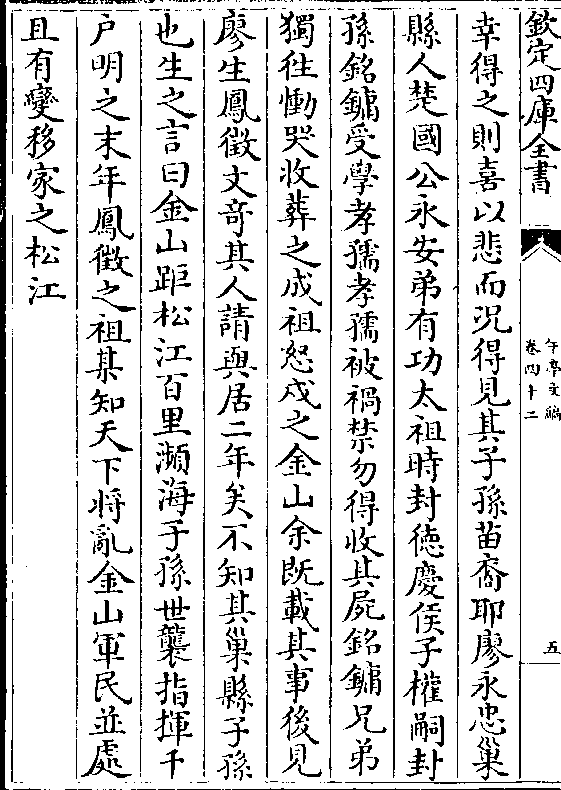 欽定四庫全書
午亭文編
卷四十二
五
幸得之則喜以悲而況得見其子孫苗裔耶廖永忠巢
縣人楚國公永安弟有功太祖時封徳慶侯子權嗣封
孫銘鏞受學孝孺孝孺被禍禁勿得收其屍銘鏞兄弟
獨徃慟哭收葬之成祖怒戍之金山余既載其事後見
廖生鳳徵文竒其人請與居二年矣不知其巢縣子孫
也生之言曰金山距松江百里瀕海子孫世襲指揮千
户明之末年鳳徵之祖某知天下将亂金山軍民並處
且有變移家之松江